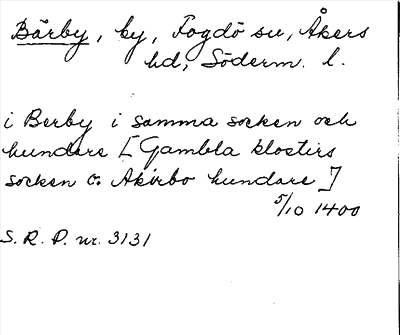 Bärby, by, Fogdö sn, Åkers
hd, Söderm. l.
i Berby i samma socken och
hundare [Gambla klosters
socken o. Akirbo hundare]
5/10 1400
S. R. P. nr. 3131